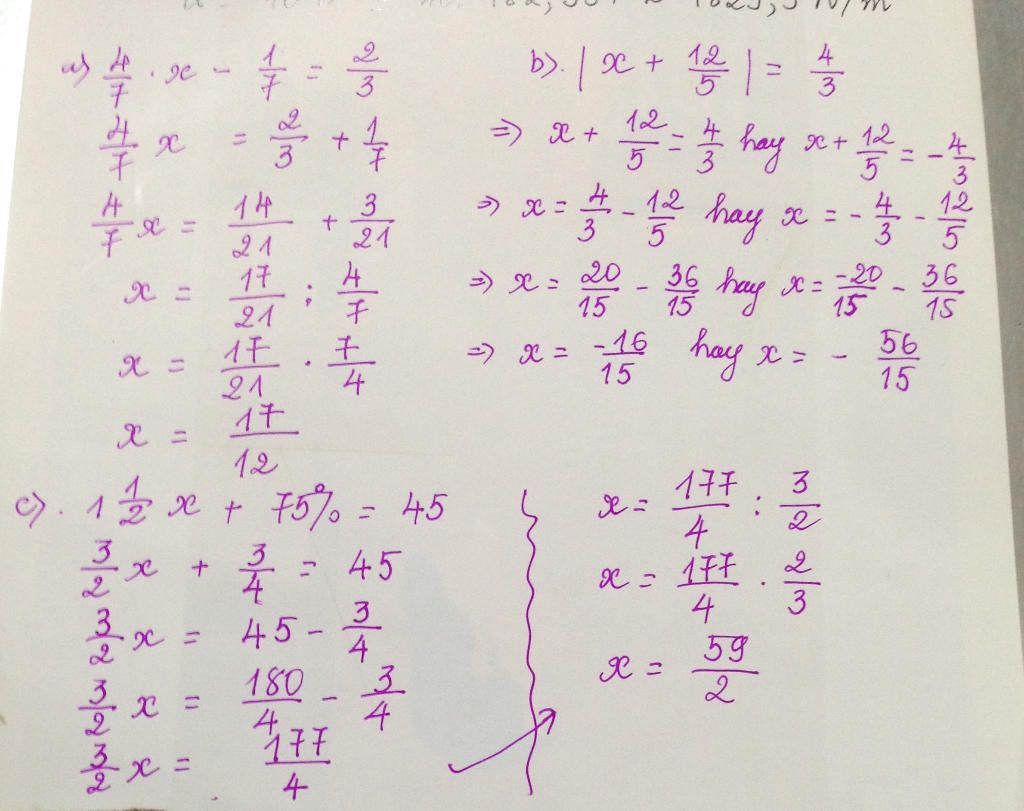 a) 4/7 . x - 1/7 = 2/3
4/7 x = 2/3 + 1/7
4/7 x = 14/21 + 3/21
x = 17/21 : 4/7
x = 17/21 . 7/4
x = 17/12
b). | x + 12/5 | = 4/3
=> x + 12/5 = 4/3 hay x + 12/5 = - 4/3
=> x = 4/3 - 12/5 hay x = - 4/3 - 12/5
=> x = 20/15 - 36/15 hay x = -20/15 - 36/15
=> x = -16/15 hay x = - 56/15
c). 1 1/2 x + 75% = 45
3/2 x + 3/4 = 45
3/2 x = 45 - 3/4
3/2 x = 180/4 - 3/4
3/2 x = 177/4
x = 177/4 : 3/2
x = 177/4 . 2/3
x = 59/2